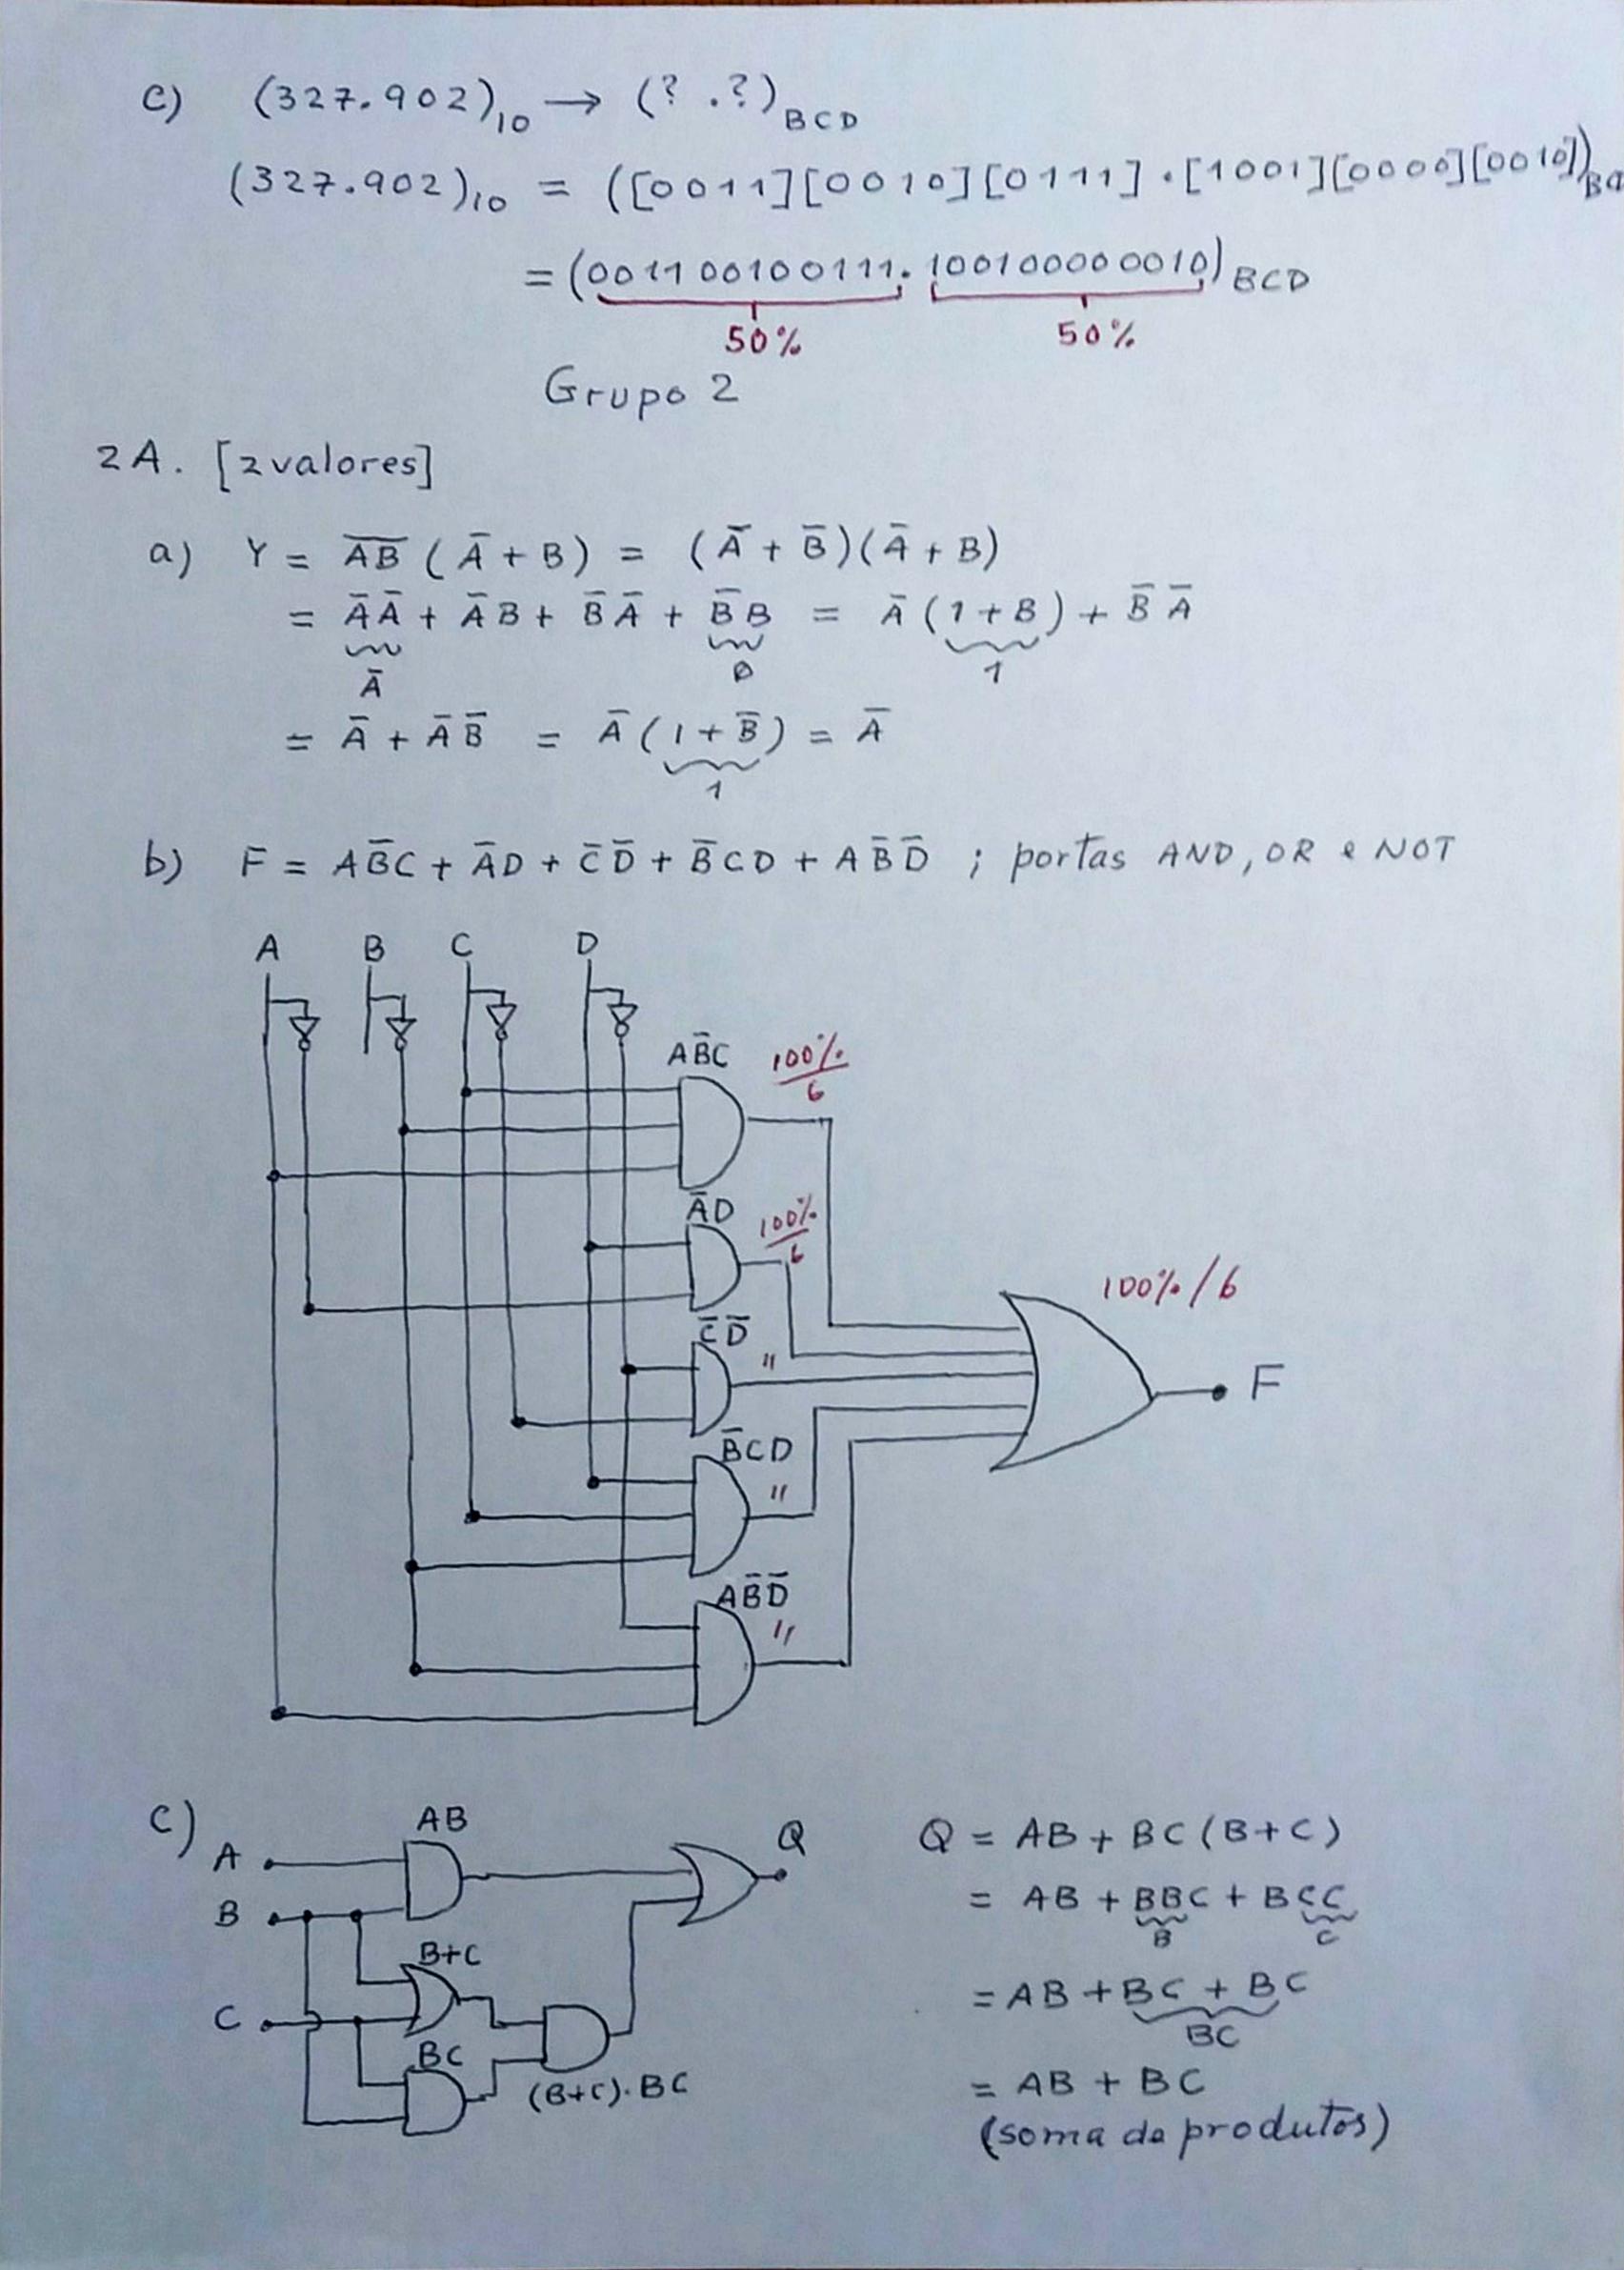 c) (327.902)₁₀ → (? .?)BCD
(327.902)₁₀ = ([0011][0010][0111].[1001][0000][0010])BC
= (001100100111.100100000010)BCD
50% 50%
Grupo 2
2A. [2valores]
a) Y = A̅B̅ (A̅ + B) = (A̅ + B̅)(A̅ + B)
= A̅A̅ + A̅B + B̅A̅ + B̅B = A̅(1+B) + B̅A̅
A̅ 0 1
= A̅ + A̅B̅ = A̅(1+B̅) = A̅
1
b) F = AB̅C + A̅D + C̅D̅ + B̅CD + AB̅D̅ ; portas AND, OR e NOT
A B C D
AB̅C 100%/6
A̅D 100%/6
100%/6
C̅D̅ "
F
B̅CD "
AB̅D̅ "
c) AB
A Q
B
B+C
C
BC
(B+C).BC
Q = AB + BC(B+C)
= AB + BBC + BCC
B C
= AB + BC + BC
BC
= AB + BC
(soma de produtos)